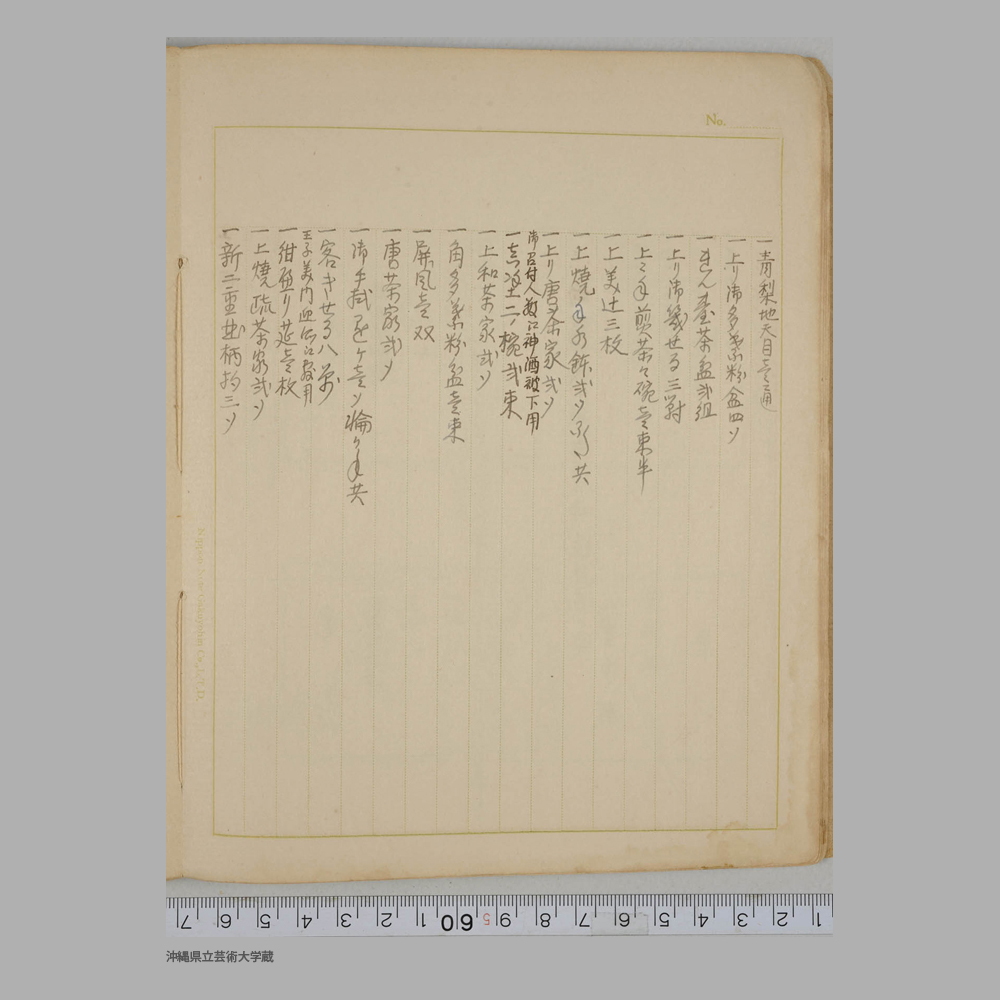 No.
一青梨地天目壱通
一上り御多葉粉盆四ツ
一きん臺茶盆弐組
一上り御幾せる三對
一上々手煎茶々碗壱束半
一上美辻三枚
一上焼手水鉢弐ツ 共
一上り唐茶家弐ツ
御召付人數江神酒被下用
一 二ノ椀弐束
一上和茶家弐ツ
一角多葉粉盆壱束
一屏風壱双
一唐茶家弐ツ
一御手拭 ケ壱ツ輪り手共
一客きせる八
王子美門 江 用
一紺 り莚壱枚
一上焼疏茶家弐ツ
一新二重曲柄杓三ツ
7 6 5 4 3 2 1 60 5 9 8 7 6 5 4 3 2 1
沖縄県立芸術大学蔵